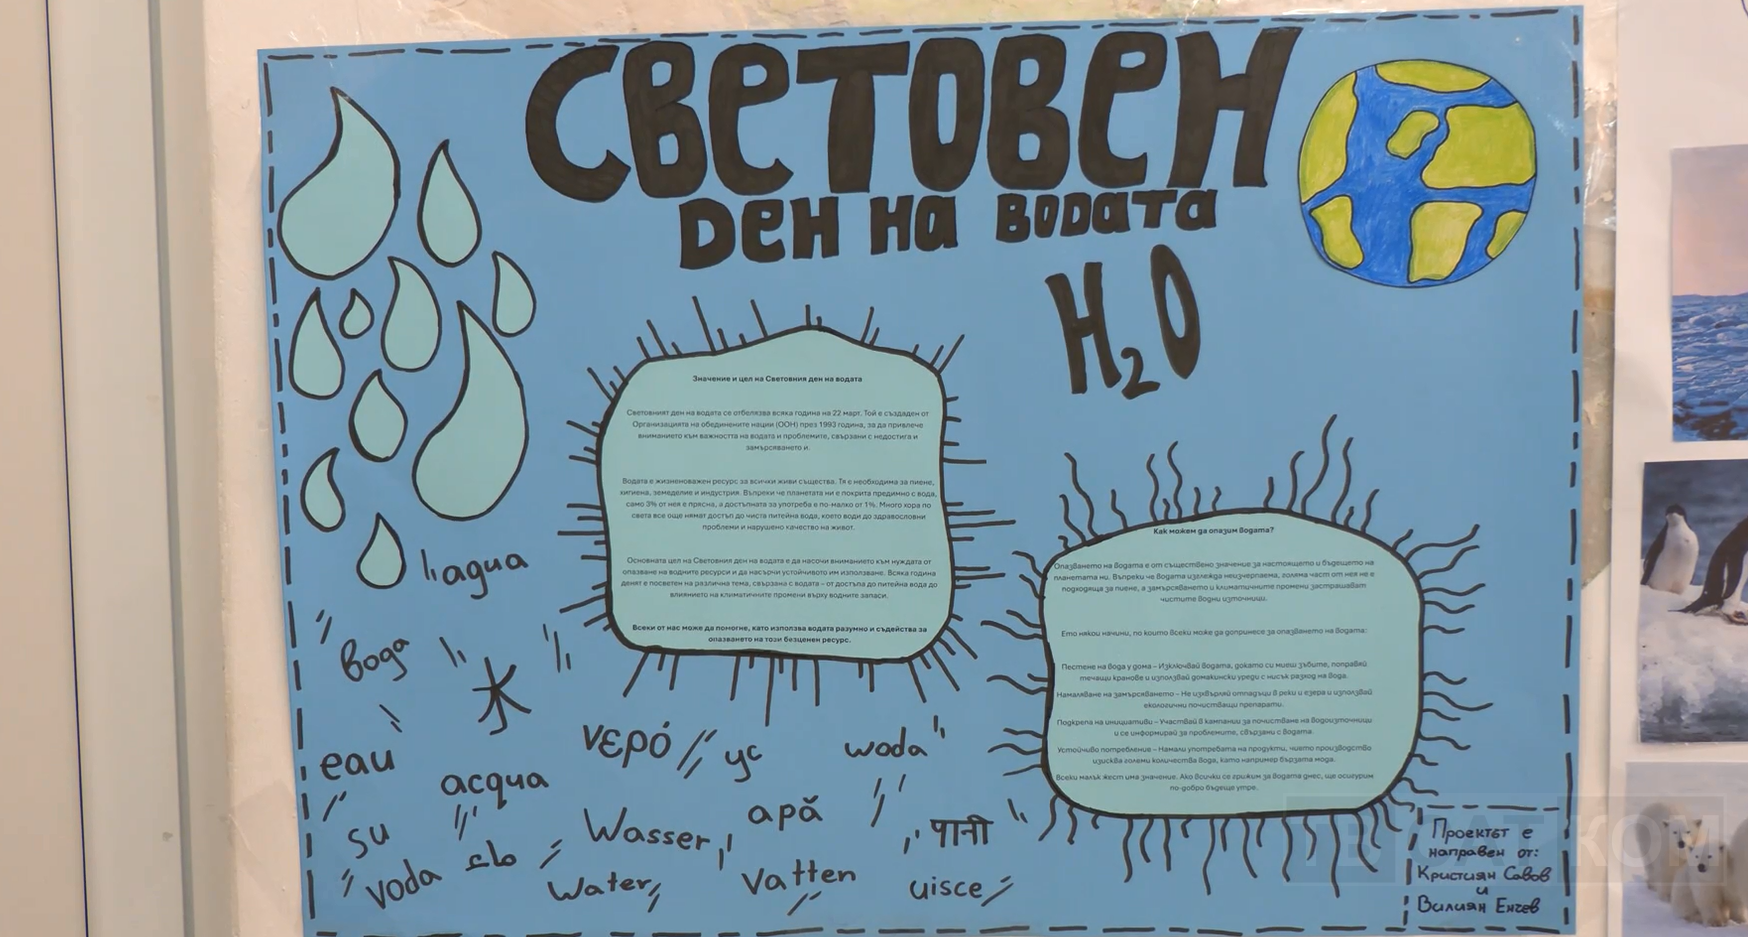 СВЕТОВЕН
ДЕН НА ВОДАТА
H₂O
Значение и цел на Световния ден на водата
Световният ден на водата се отбелязва всяка година на 22 март. Той е създаден от
Организацията на обединените нации (ООН) през 1993 година, за да привлече
вниманието към важността на водата и проблемите, свързани с недостига и
замърсяването и.
Водата е жизненоважен ресурс за всички живи същества. Тя е необходима за пиене,
хигиена, земеделие и индустрия. Въпреки че планетата ни е покрита предимно с вода,
само 3% от нея е прясна, а достъпната за употреба е по-малко от 1%. Много хора по
света все още нямат достъп до чиста питейна вода, което води до здравословни
проблеми и нарушено качество на живот.
Основната цел на Световния ден на водата е да насочи вниманието към нуждата от
опазване на водните ресурси и да насърчи устойчивото им използване. Всяка година
денят е посветен на различна тема, свързана с водата – от достъпа до питейна вода до
влиянието на климатичните промени върху водните запаси.
Всеки от нас може да помогне, като използва водата разумно и съдейства за
опазването на този безценен ресурс.
Как можем да опазим водата?
Опазването на водата е от съществено значение за настоящето и бъдещето на
планетата ни. Въпреки че водата изглежда неизчерпаема, голяма част от нея не е
подходяща за пиене, а замърсяването и климатичните промени застрашават
чистите водни източници.
Ето някои начини, по които всеки може да допринесе за опазването на водата:
Пестене на вода у дома – Изключвай водата, докато си миеш зъбите, поправяй
течащи кранове и използвай домакински уреди с нисък разход на вода.
Намаляване на замърсяването – Не изхвърляй отпадъци в реки и езера и използвай
екологични почистващи препарати.
Подкрепа на инициативи – Участвай в кампании за почистване на водоизточници
и се информирай за проблемите, свързани с водата.
Устойчиво потребление – Намали употребата на продукти, чието производство
изисква големи количества вода, като например бързата мода.
Всеки малък жест има значение. Ако всички се грижим за водата днес, ще осигурим
по-добро бъдеще утре.
agua
вода
水
eau
acqua
νερό
ус
woda
su
Wasser
apă
पानी
voda
Water
Vatten
uisce
Проектът е
направен от:
Кристиян Савов
и
Вилиян Енчев
ТВ САТ КОМ